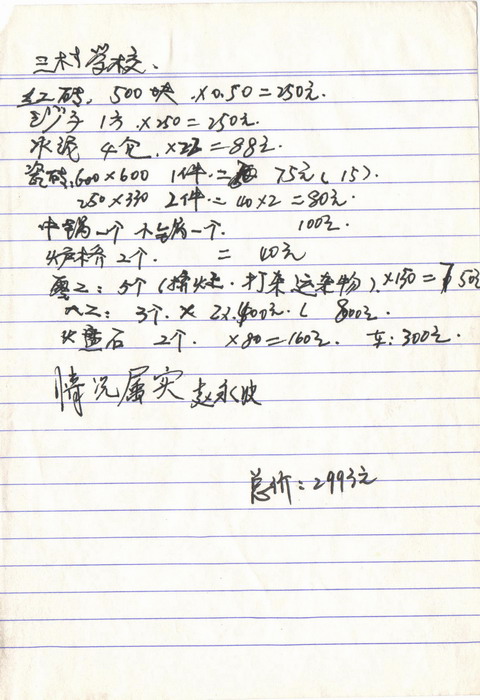 三村学校、
红砖, 500块 ×0.50=250元.
沙子 1方 ×250=250元.
水泥 4包 ×22=88元.
瓷砖,600×600 1件= 75元(15).
250×330 2件=40×2=80元.
中锅一个 小锅一个. 100元.
炉桥 2个. = 40元
:5个( 打杂 运杂物)×150=750元
大工: 3个. × 400元.( 800元.
石 2个. ×80=160元. 车:300元.
情况属实 赵永波
总价:2993元